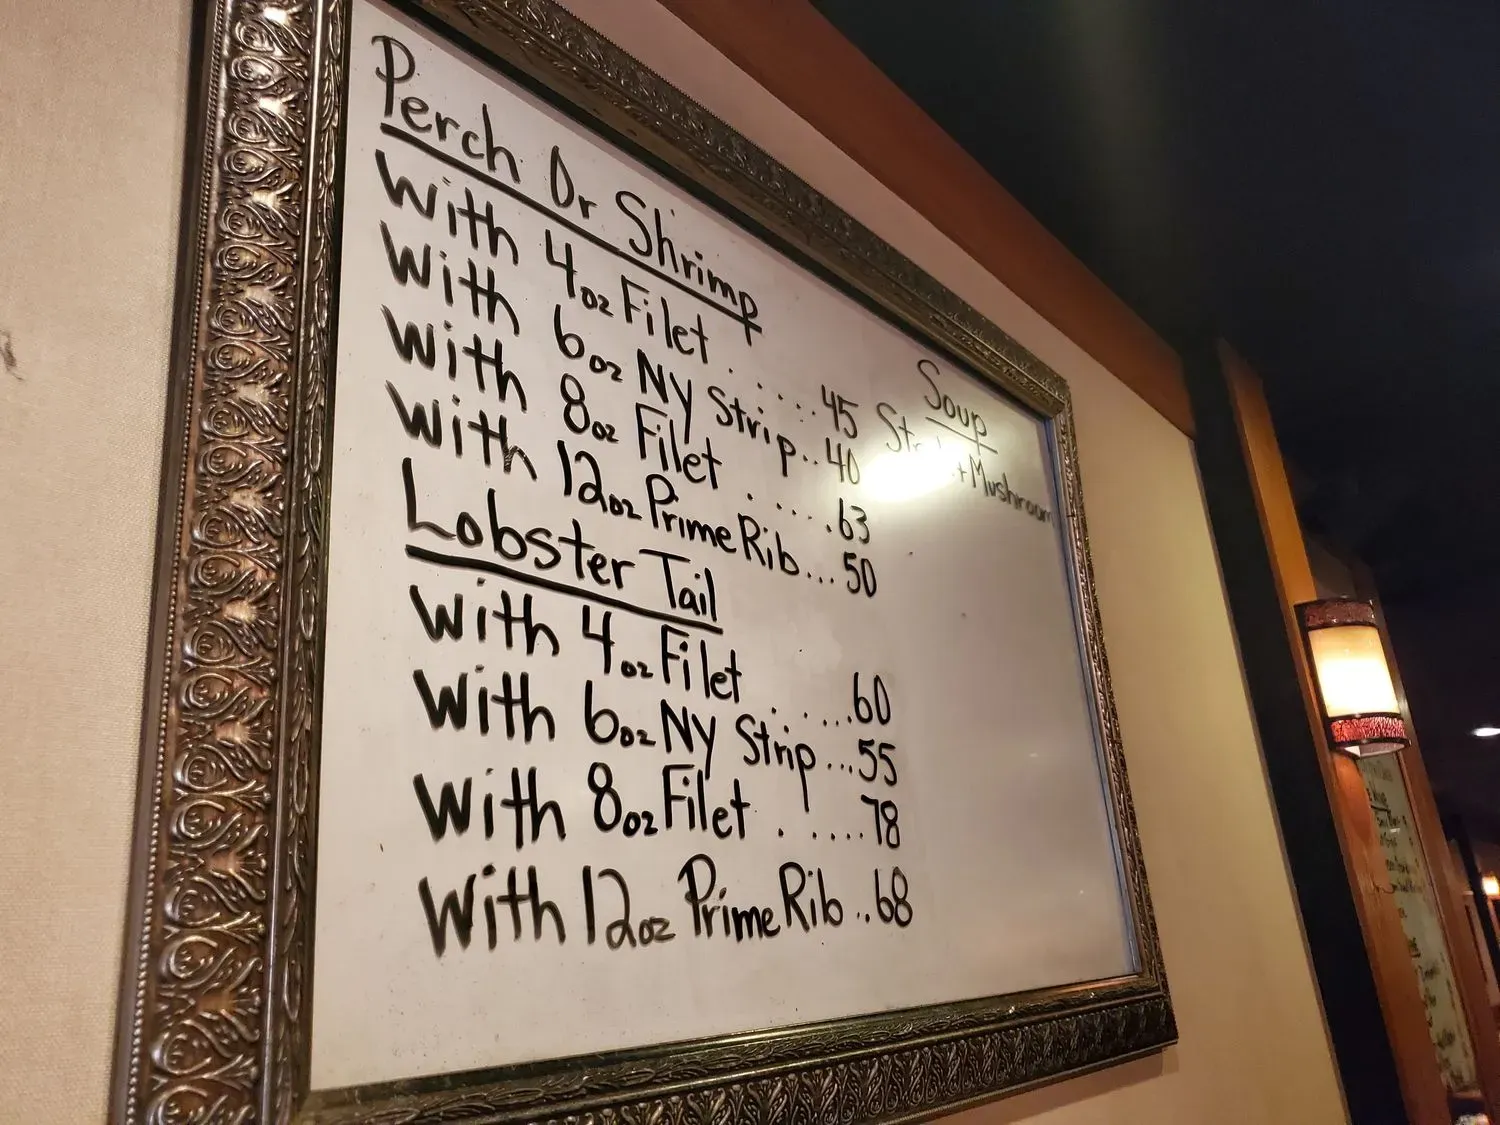 Perch Or Shrimp
With 4oz Filet . . . . . . 45
With 6oz NY Strip.. 40
With 8oz Filet . . . . . 63
With 12oz Prime Rib... 50
Lobster Tail
With 4oz Filet . . ..... 60
With 6oz NY Strip ...55
With 8oz Filet . ..... 78
With 12oz Prime Rib .. 68
Soup
+ Mushroom